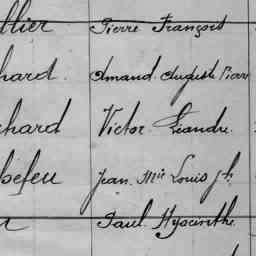 llier Pierre François
hard Amand Auguste Pierr
chard Victor Léandre
befeu Jean Mie Louis Jh
Paul Hyacinthe